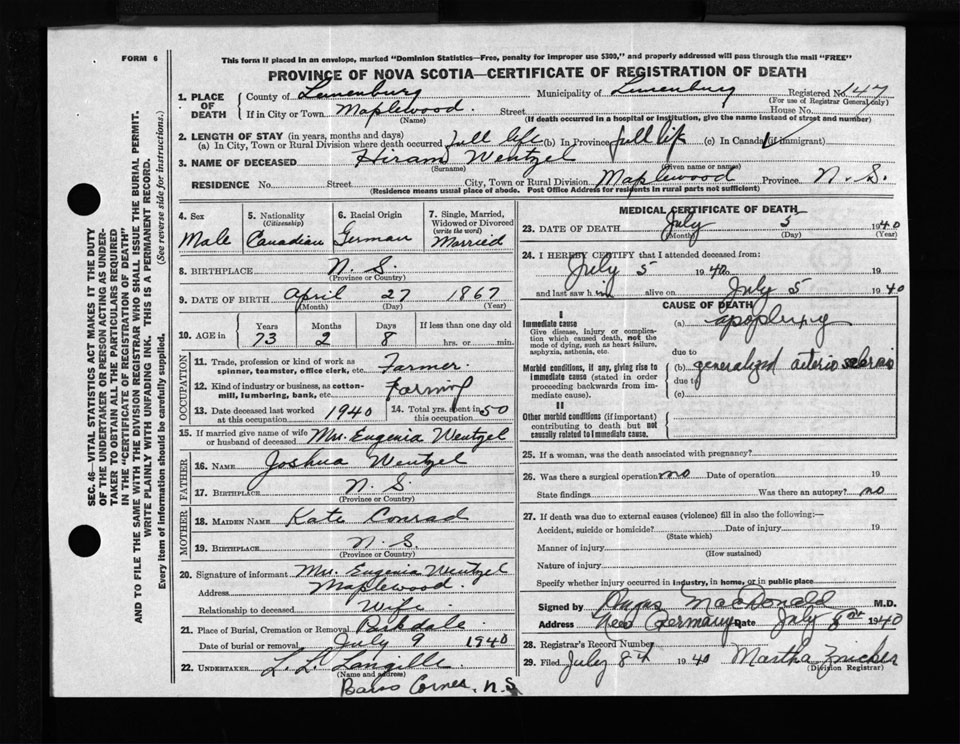 FORM 6
This form if placed in an envelope, marked "Dominion Statistics—Free, penalty for improper use $300," and properly addressed will pass through the mail "FREE"
PROVINCE OF NOVA SCOTIA—CERTIFICATE OF REGISTRATION OF DEATH
1. PLACE OF DEATH
County of Lunenburg Municipality of Lunenburg Registered No. 147
(For use of Registrar General only)
If in City or Town Maplewood. Street House No.
(Name) (If death occurred in a hospital or institution, give the name instead of street and number)
2. LENGTH OF STAY (in years, months and days)
(a) In City, Town or Rural Division where death occurred full life (b) In Province full life (c) In Canada (if immigrant)
3. NAME OF DECEASED Hiram Wentzel
(Surname) (Given name or names)
RESIDENCE No. Street City, Town or Rural Division Maplewood Province N. S.
(Residence means usual place of abode. Post Office Address for residents in rural parts not sufficient)
4. Sex
Male
5. Nationality
(Citizenship)
Canadian
6. Racial Origin
German
7. Single, Married, Widowed or Divorced
(write the word)
Married
8. BIRTHPLACE N. S.
(Province or Country)
9. DATE OF BIRTH April 27 1867
(Month) (Day) (Year)
10. AGE in
Years Months Days If less than one day old
73 2 8 hrs. or min.
OCCUPATION
11. Trade, profession or kind of work as spinner, teamster, office clerk, etc. Farmer.
12. Kind of industry or business, as cotton-mill, lumbering, bank, etc. Farming
13. Date deceased last worked at this occupation 1940 14. Total yrs. spent in this occupation 50
15. If married give name of wife or husband of deceased Mrs. Eugenia Wentzel
FATHER
16. NAME Joshua Wentzel
17. BIRTHPLACE N. S.
(Province or Country)
MOTHER
18. MAIDEN NAME Kate Conrad
19. BIRTHPLACE N. S.
(Province or Country)
20. Signature of informant Mrs. Eugenia Wentzel
Address Maplewood.
Relationship to deceased Wife.
21. Place of Burial, Cremation or Removal Parkdale.
Date of burial or removal July 9 1940
22. UNDERTAKER L. L. Langille
(Name and address)
Barss Corner, N.S
MEDICAL CERTIFICATE OF DEATH
23. DATE OF DEATH July 5 1940
(Month) (Day) (Year)
24. I HEREBY CERTIFY that I attended deceased from:
July 5 1940 19
and last saw him alive on July 5 1940
CAUSE OF DEATH
I
Immediate cause (a) apoplexy
Give disease, injury or complication which caused death, not the mode of dying, such as heart failure, asphyxia, asthenia, etc.
due to
Morbid conditions, if any, giving rise to immediate cause (stated in order proceeding backwards from immediate cause).
(b) generalized arterio sclerosis
due to
(c)
II
Other morbid conditions (if important) contributing to death but not causally related to immediate cause.
25. If a woman, was the death associated with pregnancy?
26. Was there a surgical operation no Date of operation 19
State findings Was there an autopsy? no
27. If death was due to external causes (violence) fill in also the following:—
Accident, suicide or homicide? Date of injury 19
(State which)
Manner of injury
(How sustained)
Nature of injury
Specify whether injury occurred in industry, in home, or in public place
Signed by MacDonald M.D.
Address New Germany Date July 8 1940
28. Registrar's Record Number
29. Filed July 8 1940 Martha Zwicker
(Division Registrar)
SEC. 46—VITAL STATISTICS ACT MAKES IT THE DUTY
OF THE UNDERTAKER OR PERSON ACTING AS UNDER-
TAKER TO OBTAIN ALL THE PARTICULARS REQUIRED
IN THE "CERTIFICATE OF REGISTRATION OF DEATH"
AND TO FILE THE SAME WITH THE DIVISION REGISTRAR WHO SHALL ISSUE THE BURIAL PERMIT.
WRITE PLAINLY WITH UNFADING INK. THIS IS A PERMANENT RECORD.
Every item of information should be carefully supplied. (See reverse side for instructions.)